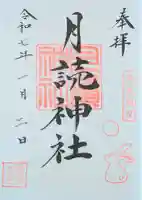 奉拝
月読神社
令和七年一月二日